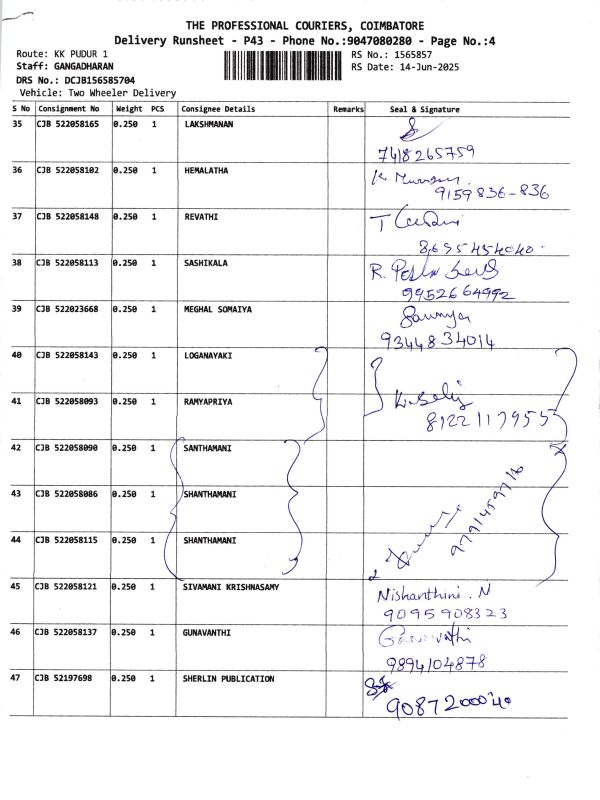 THE PROFESSIONAL COURIERS, COIMBATORE
Delivery Runsheet - P43 - Phone No.:9047080280 - Page No.:4
Route: KK PUDUR 1
RS No.: 1565857
Staff: GANGADHARAN
RS Date: 14-Jun-2025
DRS No.: DCJB156585704
Vehicle: Two Wheeler Delivery
S No Consignment No Weight PCS Consignee Details Remarks Seal & Signature
35 CJB 522058165 0.250 1 LAKSHMANAN
7418265759
36 CJB 522058102 0.250 1 HEMALATHA K
9159836-836
37 CJB 522058148 0.250 1 REVATHI T
8695454040
38 CJB 522058113 0.250 1 SASHIKALA R.
9952664992
39 CJB 522023668 0.250 1 MEGHAL SOMAIYA Sowmya
9344834014
40 CJB 522058143 0.250 1 LOGANAYAKI
41 CJB 522058093 0.250 1 RAMYAPRIYA
8122117955
42 CJB 522058090 0.250 1 SANTHAMANI
43 CJB 522058086 0.250 1 SHANTHAMANI
9791459716
44 CJB 522058115 0.250 1 SHANTHAMANI
45 CJB 522058121 0.250 1 SIVAMANI KRISHNASAMY Nishanthini. N
9095908323
46 CJB 522058137 0.250 1 GUNAVANTHI Gunavathi
9894104878
47 CJB 52197698 0.250 1 SHERLIN PUBLICATION
9087200040